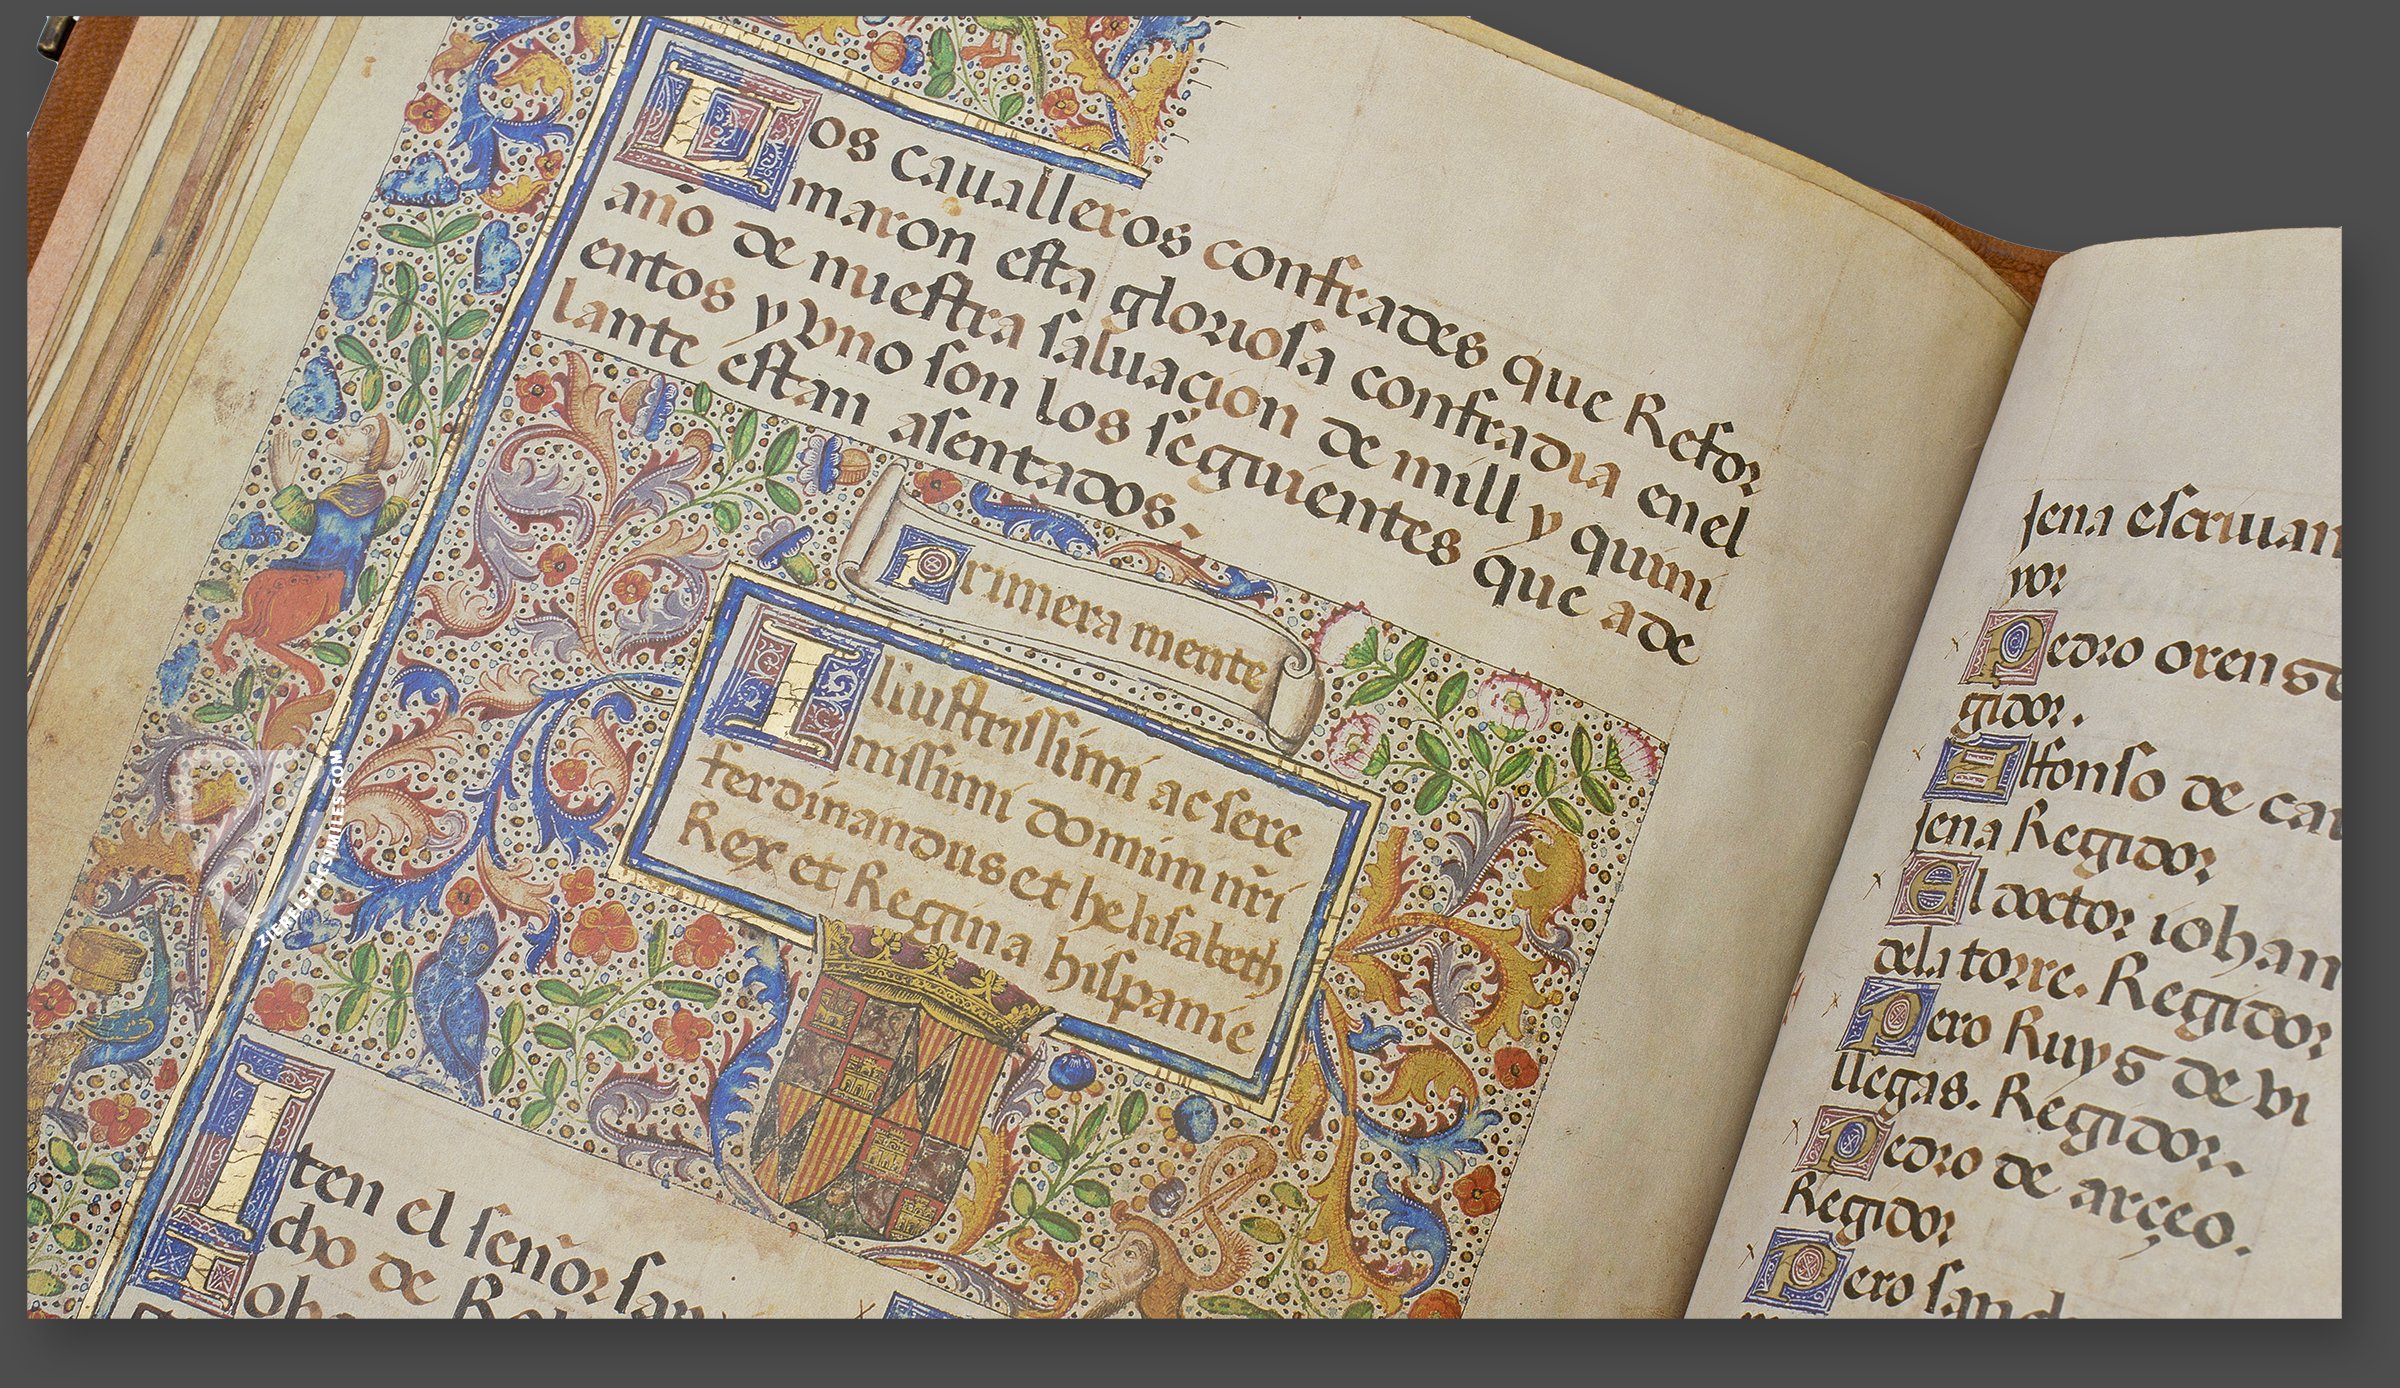 Los caualleros confrades que Refor
maron esta gloriosa confradia enel
año de nuestra saluacion de mill y quini
entos y vno son los seguientes que ade
lante estan asentados.
Primera mente
Illiustrissimi ac sere
nissimi domini nr̃i
ferdinandus et helisabeth
Rex et Regina hispanie
Iten el señor san
cho de Ro
ZIEREIS FACSIMILES.COM
jena escriuan
yor
Pedro orens de
gidor.
Alfonso de car
jena Regidor
El doctor iohan
dela torre. Regidor
Pero Ruys de vi
llegas. Regidor.
Pedro de arçeo.
Regidor
Pero